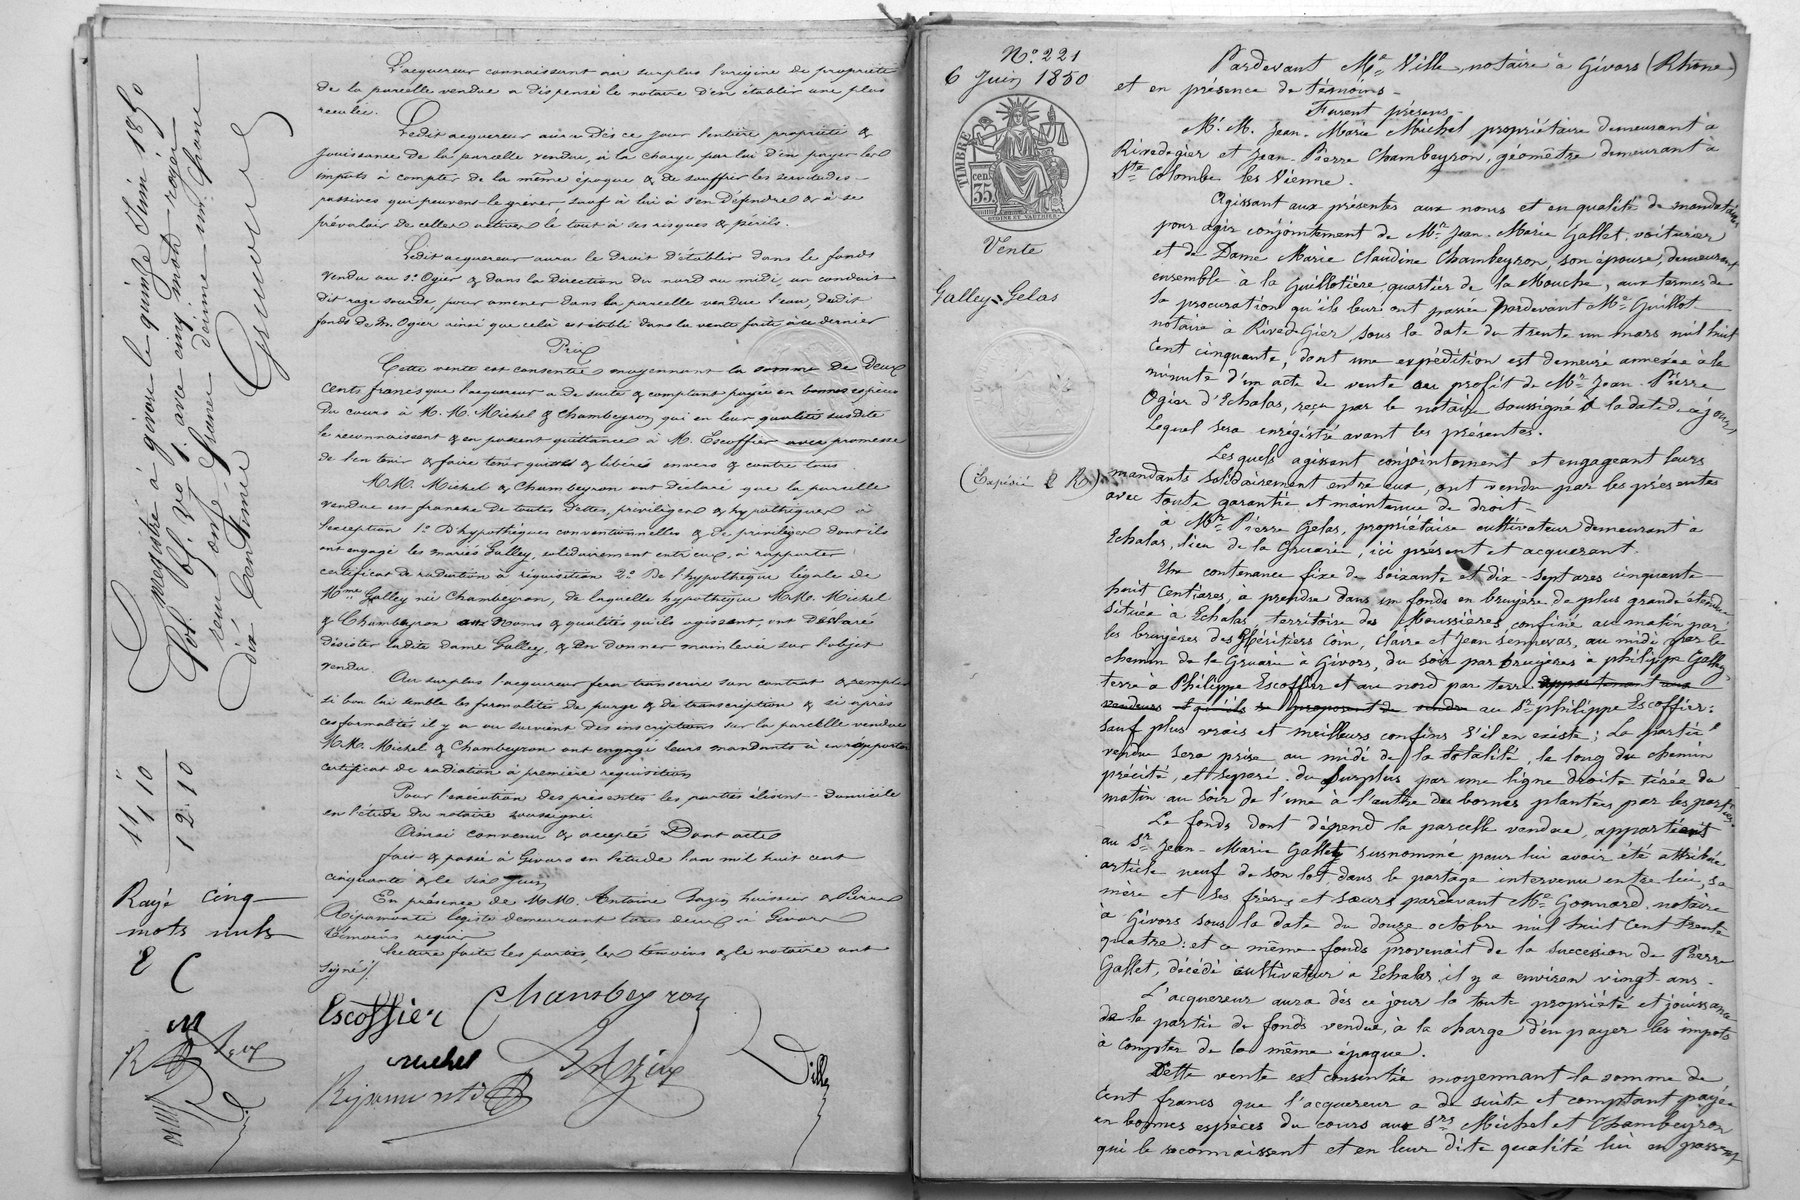 L'acquereur connaissant au surplus l'origine de propriété
de la parcelle vendue a dispensé le notaire d'en établir une plus
reculée.
Ledit acquereur aura dès ce jour l'entière propriété &
jouissance de la parcelle vendue, à la charge par lui d'en payer les
impots à compter de la même époque & de souffrir les servitudes
passives qui peuvent la grever sauf à lui à s'en défendre & à se
prévaloir de celles actives le tout à ses risques & périls.
Ledit acquereur aura le Droit d'établir dans le fonds
vendu au s.r Ogier & dans la Direction du nord au midi, un conduit
dit raze sourde, pour amener dans la parcelle vendue l'eau, dudit
fonds de M. Ogier ainsi que celà est établi dans la vente faite à ce dernier
Prix
Cette vente est consentie moyennant la somme de Deux
cents francs que l'acquereur a de suite & comptant payée en bonnes espèces
du cours à M.M. Michel & Chambeyron qui en leur qualité susdite
le reconnaissent & en passent quittance à M. Escoffier avec promesse
de l'en tenir & faire tenir quitte & libéré envers & contre tous.
MM. Michel & Chambeyron ont déclaré que la parcelle
vendue est franche de toutes Dettes, privilèges & hypothèques à
l'exception 1.o D'hypothèques conventionnelles & de privilèges dont ils
ont engagé les mariés Galley, solidairement entr'eux, à rapporter
certificat de radiation à réquisition 2.o De l'hypothèque légale de
M.me Galley née Chambeyron, de laquelle hypothèque MM. Michel
& Chambeyron aux Noms & qualités qu'ils agissent, ont Déclaré
désister ladite dame Galley, & en donner main levée sur l'objet
vendu.
Au surplus l'acquereur fera transcrire son contrat & remplir
si bon lui semble les formalités de purge & de transcription & si après
ces formalités il y a ou survient des inscriptions sur la parcelle vendue
MM. Michel & Chambeyron ont engagé leurs mandants à en rapporter
certificat de radiation à première requisition
Pour l'exécution des présentes les parties élisent domicile
en l'étude du notaire soussigné.
Ainsi convenu & accepté Dont acte
fait & passé à Givors en l'étude l'an mil huit cent
cinquante & le six Juin
En présence de M.M. Antoine Bazin huissier & Pierre
Ripamonte logiste demeurant tous deux à Givors
témoins requis
Lecture faite les parties, les témoins & le notaire ont
signé ./.
Escoffier Chambeyron
michel Bazin Ville
Enregistré à givors le quinze Juin 1850
reçu onze francs décime un franc
dix centimes
11 "
1,10
12.10
Rayé cinq
mots nuls
E C
M
N.o 221
6 Juin 1850
TIMBRE
35 cen.
Vente
Galley à Gelas
Pardevant M.e Ville, notaire à Givors (Rhône)
et en présence de témoins
Furent présens
M.M. Jean-Marie Michel propriétaire demeurant à
Rivedegier et Jean-Pierre Chambeyron, géomètre demeurant à
S.te Colombe lès Vienne.
Agissant aux présentes aux noms et en qualité de mandataires
pour agir conjointement de M.r Jean-Marie Gallet, voiturier
et de Dame Marie Claudine Chambeyron, son épouse, demeurant
ensemble à la Guillotière, quartier de la Mouche, aux termes de
la procuration qu'ils leur ont passée pardevant M.e Guillot
notaire à Rivedegier, sous la date du trente un mars mil huit
cent cinquante, dont une expédition est demeurée annexée à la
minute d'un acte de vente au profit de M.r Jean-Pierre
Ogier d'Echalas, reçu par le notaire soussigné à la date de ce jour,
lequel sera enrégistré avant les présentes.
Lesquels agissant conjointement et engageant leurs
mandants solidairement entre eux, ont vendu par les présentes
avec toute garantie et maintenue de droit
a M.r Pierre Gelas, propriétaire cultivateur demeurant à
Echalas, lieu de la Gruarie, ici présent et acquerant.
Une contenance fixe de soixante et dix-sept ares cinquante
huit centiares, a prendre dans un fonds en bruyère de plus grande étendue
située à Echalas, territoire des Moussières, confiné au matin par
les bruyères des héritiers Coin, Claire et Jean Jennevas, au midi par le
chemin de la Gruarie à Givors, du soir par bruyères à philippe Galley,
terre à Philippe Escoffier et au nord par terre appartenant aux
vendeurs et qu'ils se proposent de vendre au S.r philippe Escoffier;
sauf plus vrais et meilleurs confins s'il en existe; La partie
vendue sera prise au midi de la totalité, le long du chemin
précité, et séparé du surplus par une ligne droite tirée du
matin au soir de l'une à l'autre des bornes plantées par les parties.
Le fonds dont dépend la parcelle vendue, appartient
au S.r Jean-Marie Galley susnommé pour lui avoir été attribué
article neuf de son lot, dans le partage intervenu entre lui, sa
mère et ses frères et sœurs pardevant M.e Gonnard notaire
à Givors sous la date du douze octobre mil huit cent trente
quatre; et ce même fonds provenait de la succession de Pierre
Gallet, décédé cultivateur à Echalas il y a environ vingt ans.
L'acquereur aura dès ce jour la toute propriété et jouissance
de la partie de fonds vendue, à la charge d'en payer les impots
à compter de la même époque.
Cette vente est consentie moyennant la somme de
Cent francs que l'acquereur a de suite et comptant payée
en bonnes espèces du cours aux S.rs Michel et Chambeyron
qui le reconnaissent et en leur dite qualité lui en passent